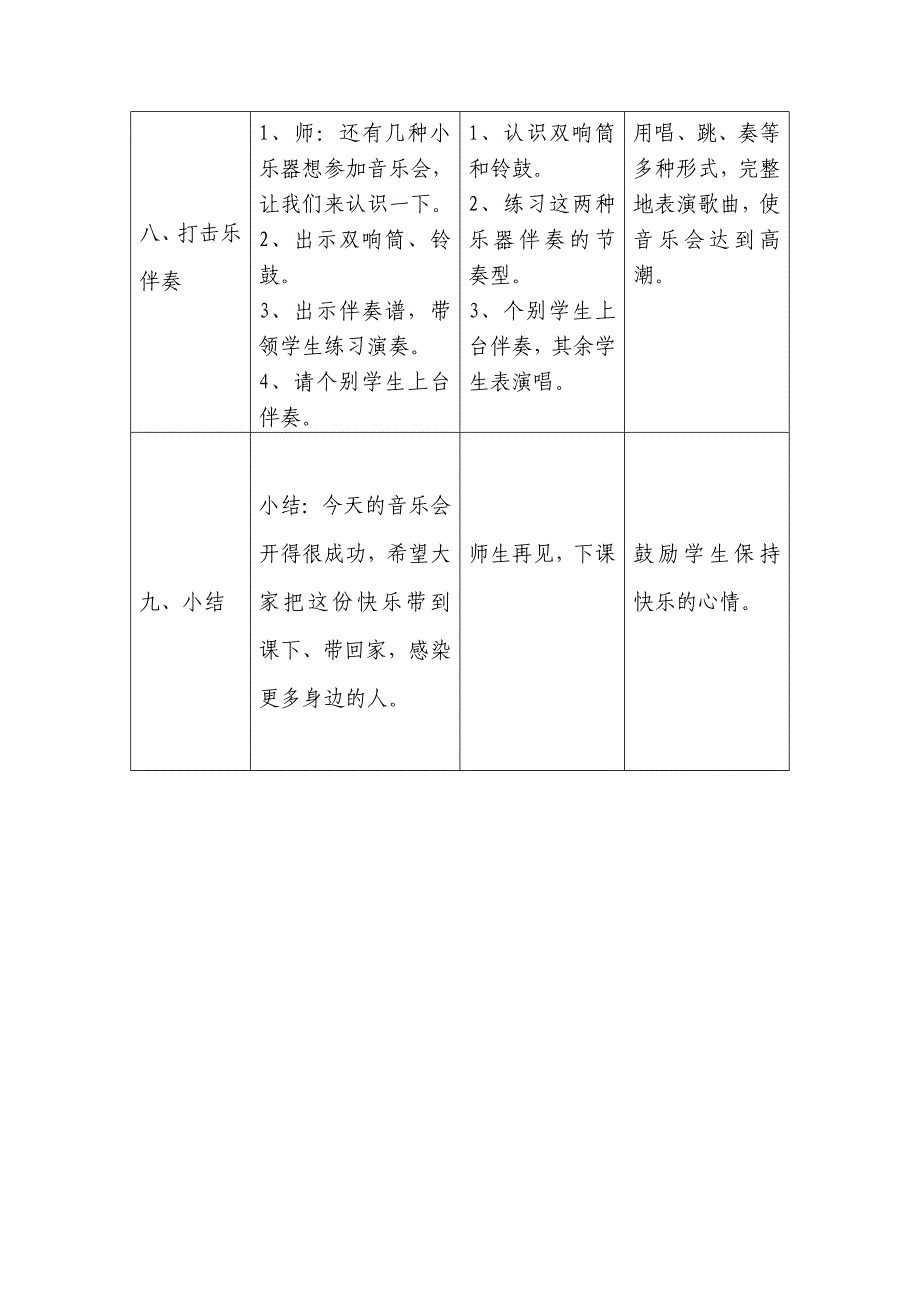 八、打击乐
伴奏
1、师：还有几种小
乐器想参加音乐会，
让我们来认识一下。
2、出示双响筒、铃
鼓。
3、出示伴奏谱，带
领学生练习演奏。
4、请个别学生上台
伴奏。
1、认识双响筒
和铃鼓。
2、练习这两种
乐器伴奏的节
奏型。
3、个别学生上
台伴奏，其余学
生表演唱。
用唱、跳、奏等
多种形式，完整
地表演歌曲，使
音乐会达到高
潮。
九、小结
小结：今天的音乐会
开得很成功，希望大
家把这份快乐带到
课下、带回家，感染
更多身边的人。
师生再见，下课
鼓励学生保持
快乐的心情。